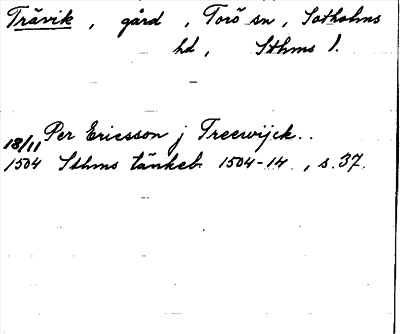 Trävik, gård, Torö sn, Sotholms
hd, Sthms l.
18/11 Per Ericsson j Treewijck..
1504 Sthms tänkeb. 1504-14, s. 37.